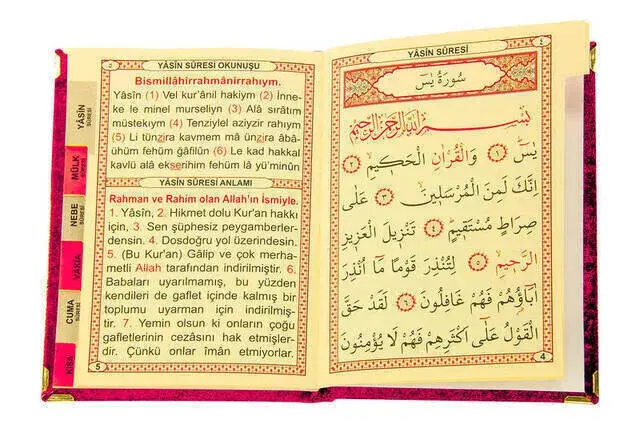 YÂSÎN SÛRESİ OKUNUŞU
٥
Bismillâhirrahmânirrahıym.
Yâsîn (1) Vel kur'ânil hakiym (2) İnne-
ke le minel murseliyn (3) Alâ sırâtım
müstekıym (4) Tenziylel aziyzir rahıym
(5) Li tünzira kavmem mâ ünzira âbâ-
ühüm fehüm gâfilûn (6) Le kad hakkal
kavlü alâ ekserihim fehüm lâ yü'minûn
YÂSÎN SÛRESİ ANLAMI
Rahman ve Rahim olan Allah'ın İsmiyle.
1. Yâsîn, 2. Hikmet dolu Kur'an hakkı
için, 3. Sen şüphesiz peygamberler-
densin. 4. Dosdoğru yol üzerindesin.
5. (Bu Kur'an) Gâlip ve çok merha-
metli Allah tarafından indirilmiştir. 6.
Babaları uyarılmamış, bu yüzden
kendileri de gaflet içinde kalmış bir
toplumu uyarman için indirilmiş-
tir. 7. Yemin olsun ki onların çoğu
gafletlerinin cezasını hak etmişler-
dir. Çünkü onlar îmân etmiyorlar.
5
YÂSÎN SÛRESİ
MÜLK
NEBE SÛRESİ
VÂKIA
CUMA SÛRESİ
KISA
YÂSÎN SÛRESİ
٤
سُورَةُ يٰسٓ
بِسْمِ اللّٰهِ الرَّحْمٰنِ الرَّحِيمِ
يٰسٓ ﴿١﴾ وَالْقُرْاٰنِ الْحَكِيمِ ﴿٢﴾
اِنَّكَ لَمِنَ الْمُرْسَلِينَ ﴿٣﴾ عَلٰى
صِرَاطٍ مُسْتَقِيمٍ ﴿٤﴾ تَنْزِيلَ الْعَزِيزِ
الرَّحِيمِ ﴿٥﴾ لِتُنْذِرَ قَوْمًا مَٓا اُنْذِرَ
اٰبَٓاؤُهُمْ فَهُمْ غَافِلُونَ ﴿٦﴾ لَقَدْ حَقَّ
الْقَوْلُ عَلٰٓى اَكْثَرِهِمْ فَهُمْ لَا يُؤْمِنُونَ
4